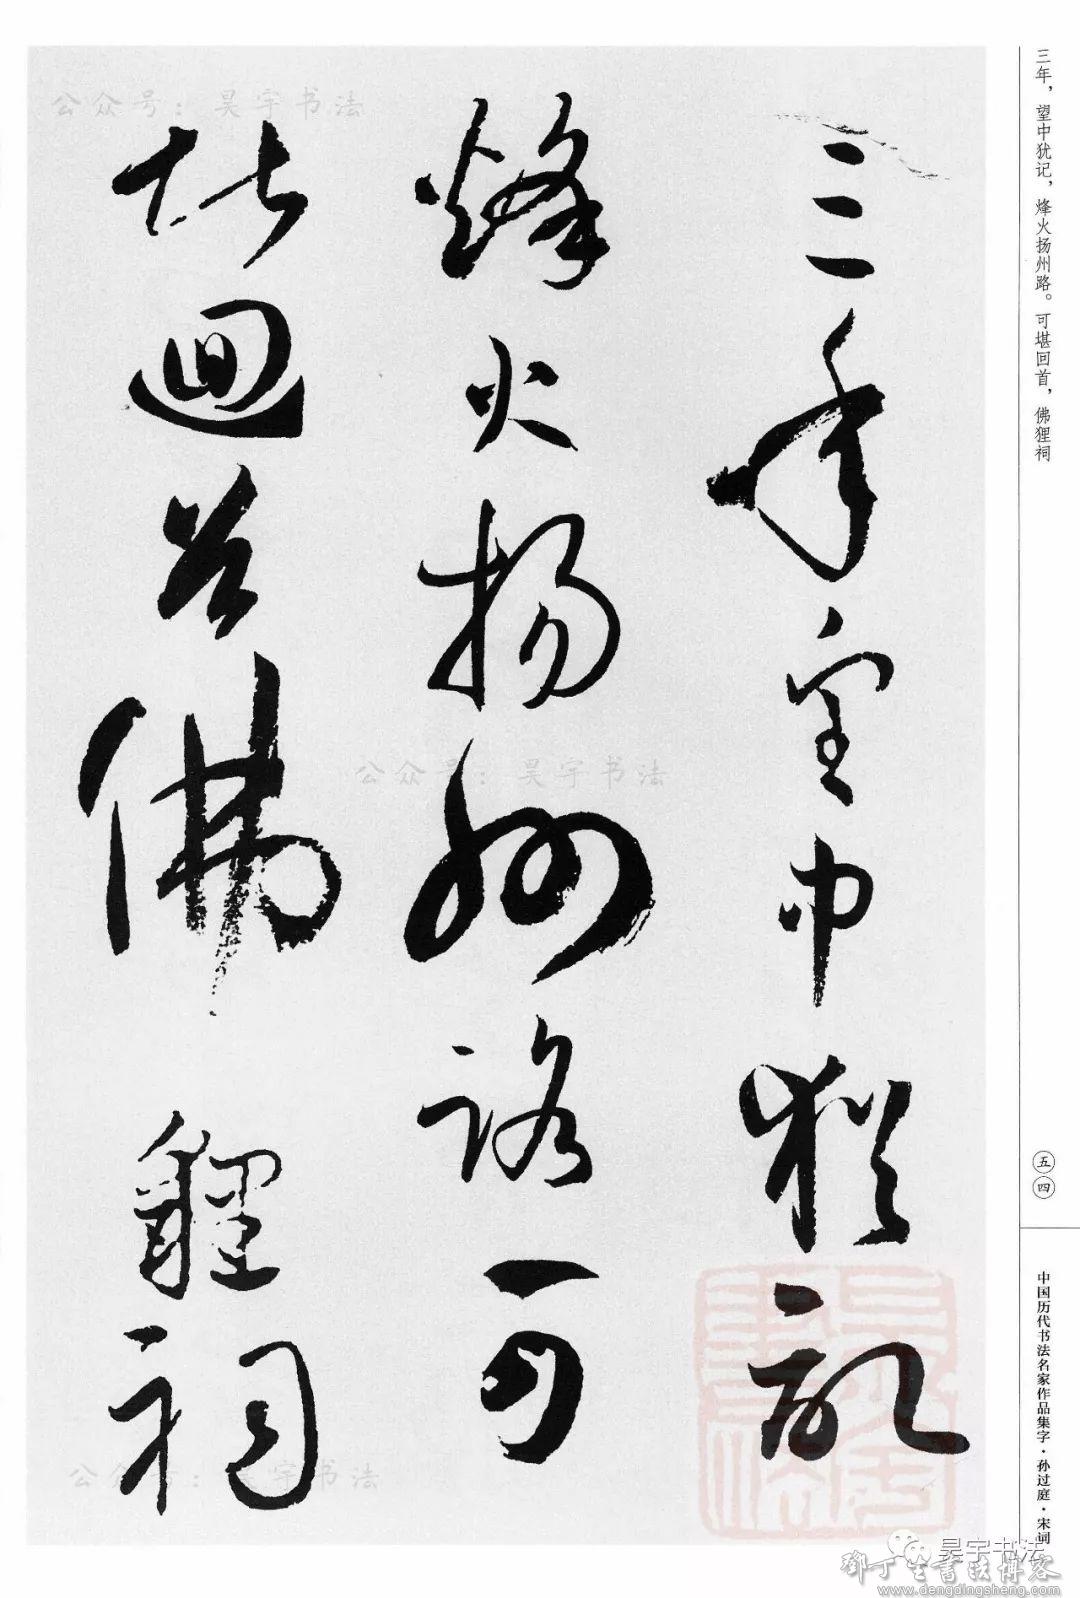 三年望中犹記
烽火扬州路可
堪迴首佛貍祠
三年，望中犹记，烽火扬州路。可堪回首，佛狸祠
五四
中国历代书法名家作品集字·孙过庭·宋词
公众号：昊宇书法
公众号：昊宇书法
公众号：昊宇书法
昊宇书法
鄧丁生書法博客
www.dengdingsheng.com